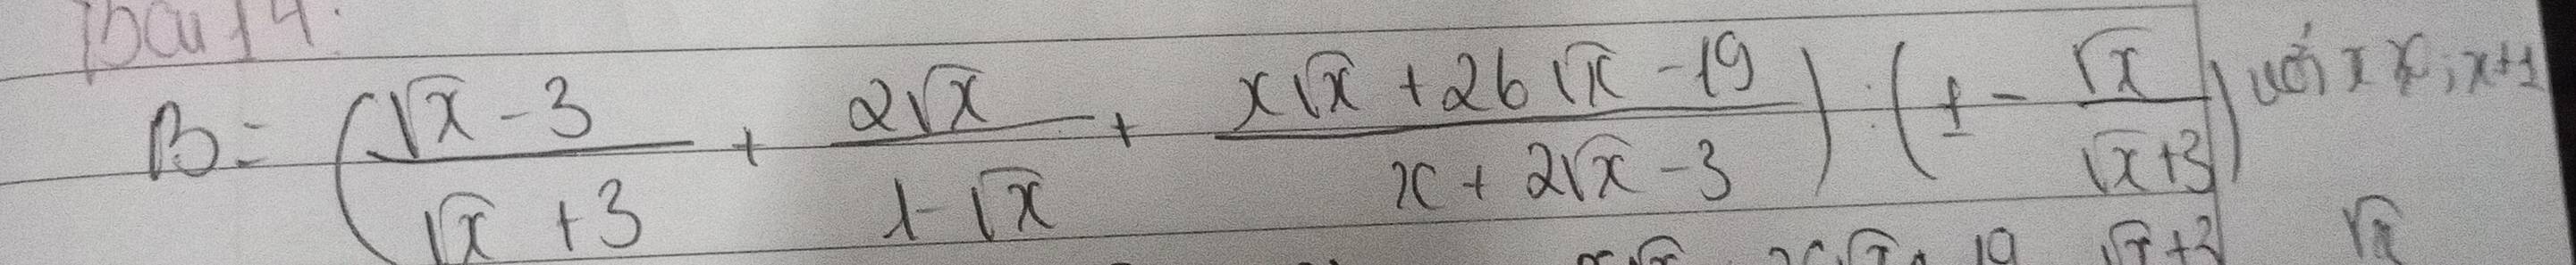 Bài 14:
B = ( (√x - 3)/(√x + 3) + (2√x)/(1 - √x) + (x√x + 26√x - 19)/(x + 2√x - 3) ) : ( 1 - (√x)/(√x + 3) ) với x ; x ≠ 1
√x + 3 √x